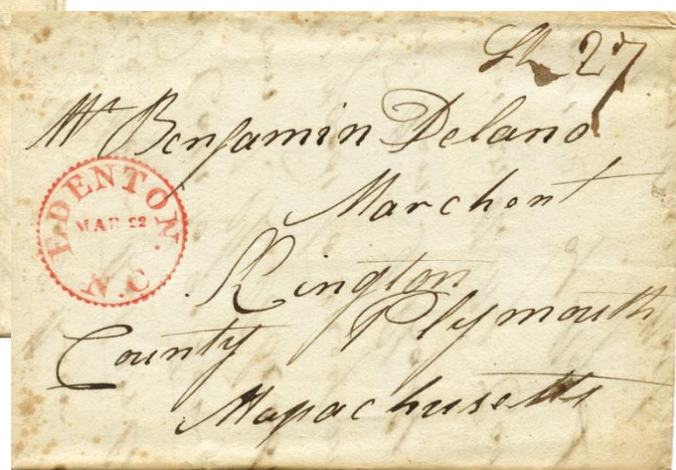 Sh 27
Mr Benjamin Delano
Marchent
Kington
County Plymouth
Massachusetts
EDENTON.
MAR 22
N.C